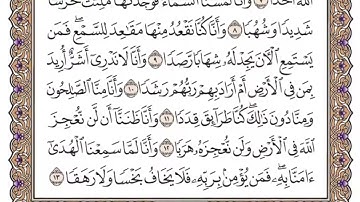 ٱللَّهُ أَحَدًا ٧ وَأَنَّا لَمَسْنَا ٱلسَّمَآءَ فَوَجَدْنَٰهَا مُلِئَتْ حَرَسًا
شَدِيدًا وَشُهُبًا ٨ وَأَنَّا كُنَّا نَقْعُدُ مِنْهَا مَقَٰعِدَ لِلسَّمْعِ ۖ فَمَن
يَسْتَمِعِ ٱلْءَانَ يَجِدْ لَهُۥ شِهَابًا رَّصَدًا ٩ وَأَنَّا لَا نَدْرِىٓ أَشَرٌّ أُرِيدَ
بِمَن فِى ٱلْأَرْضِ أَمْ أَرَادَ بِهِمْ رَبُّهُمْ رَشَدًا ١٠ وَأَنَّا مِنَّا ٱلصَّٰلِحُونَ
وَمِنَّا دُونَ ذَٰلِكَ ۖ كُنَّا طَرَآئِقَ قِدَدًا ١١ وَأَنَّا ظَنَنَّآ أَن لَّن نُّعْجِزَ
ٱللَّهَ فِى ٱلْأَرْضِ وَلَن نُّعْجِزَهُۥ هَرَبًا ١٢ وَأَنَّا لَمَّا سَمِعْنَا ٱلْهُدَىٰٓ
ءَامَنَّا بِهِۦ ۖ فَمَن يُؤْمِنۢ بِرَبِّهِۦ فَلَا يَخَافُ بَخْسًا وَلَا رَهَقًا ١٣